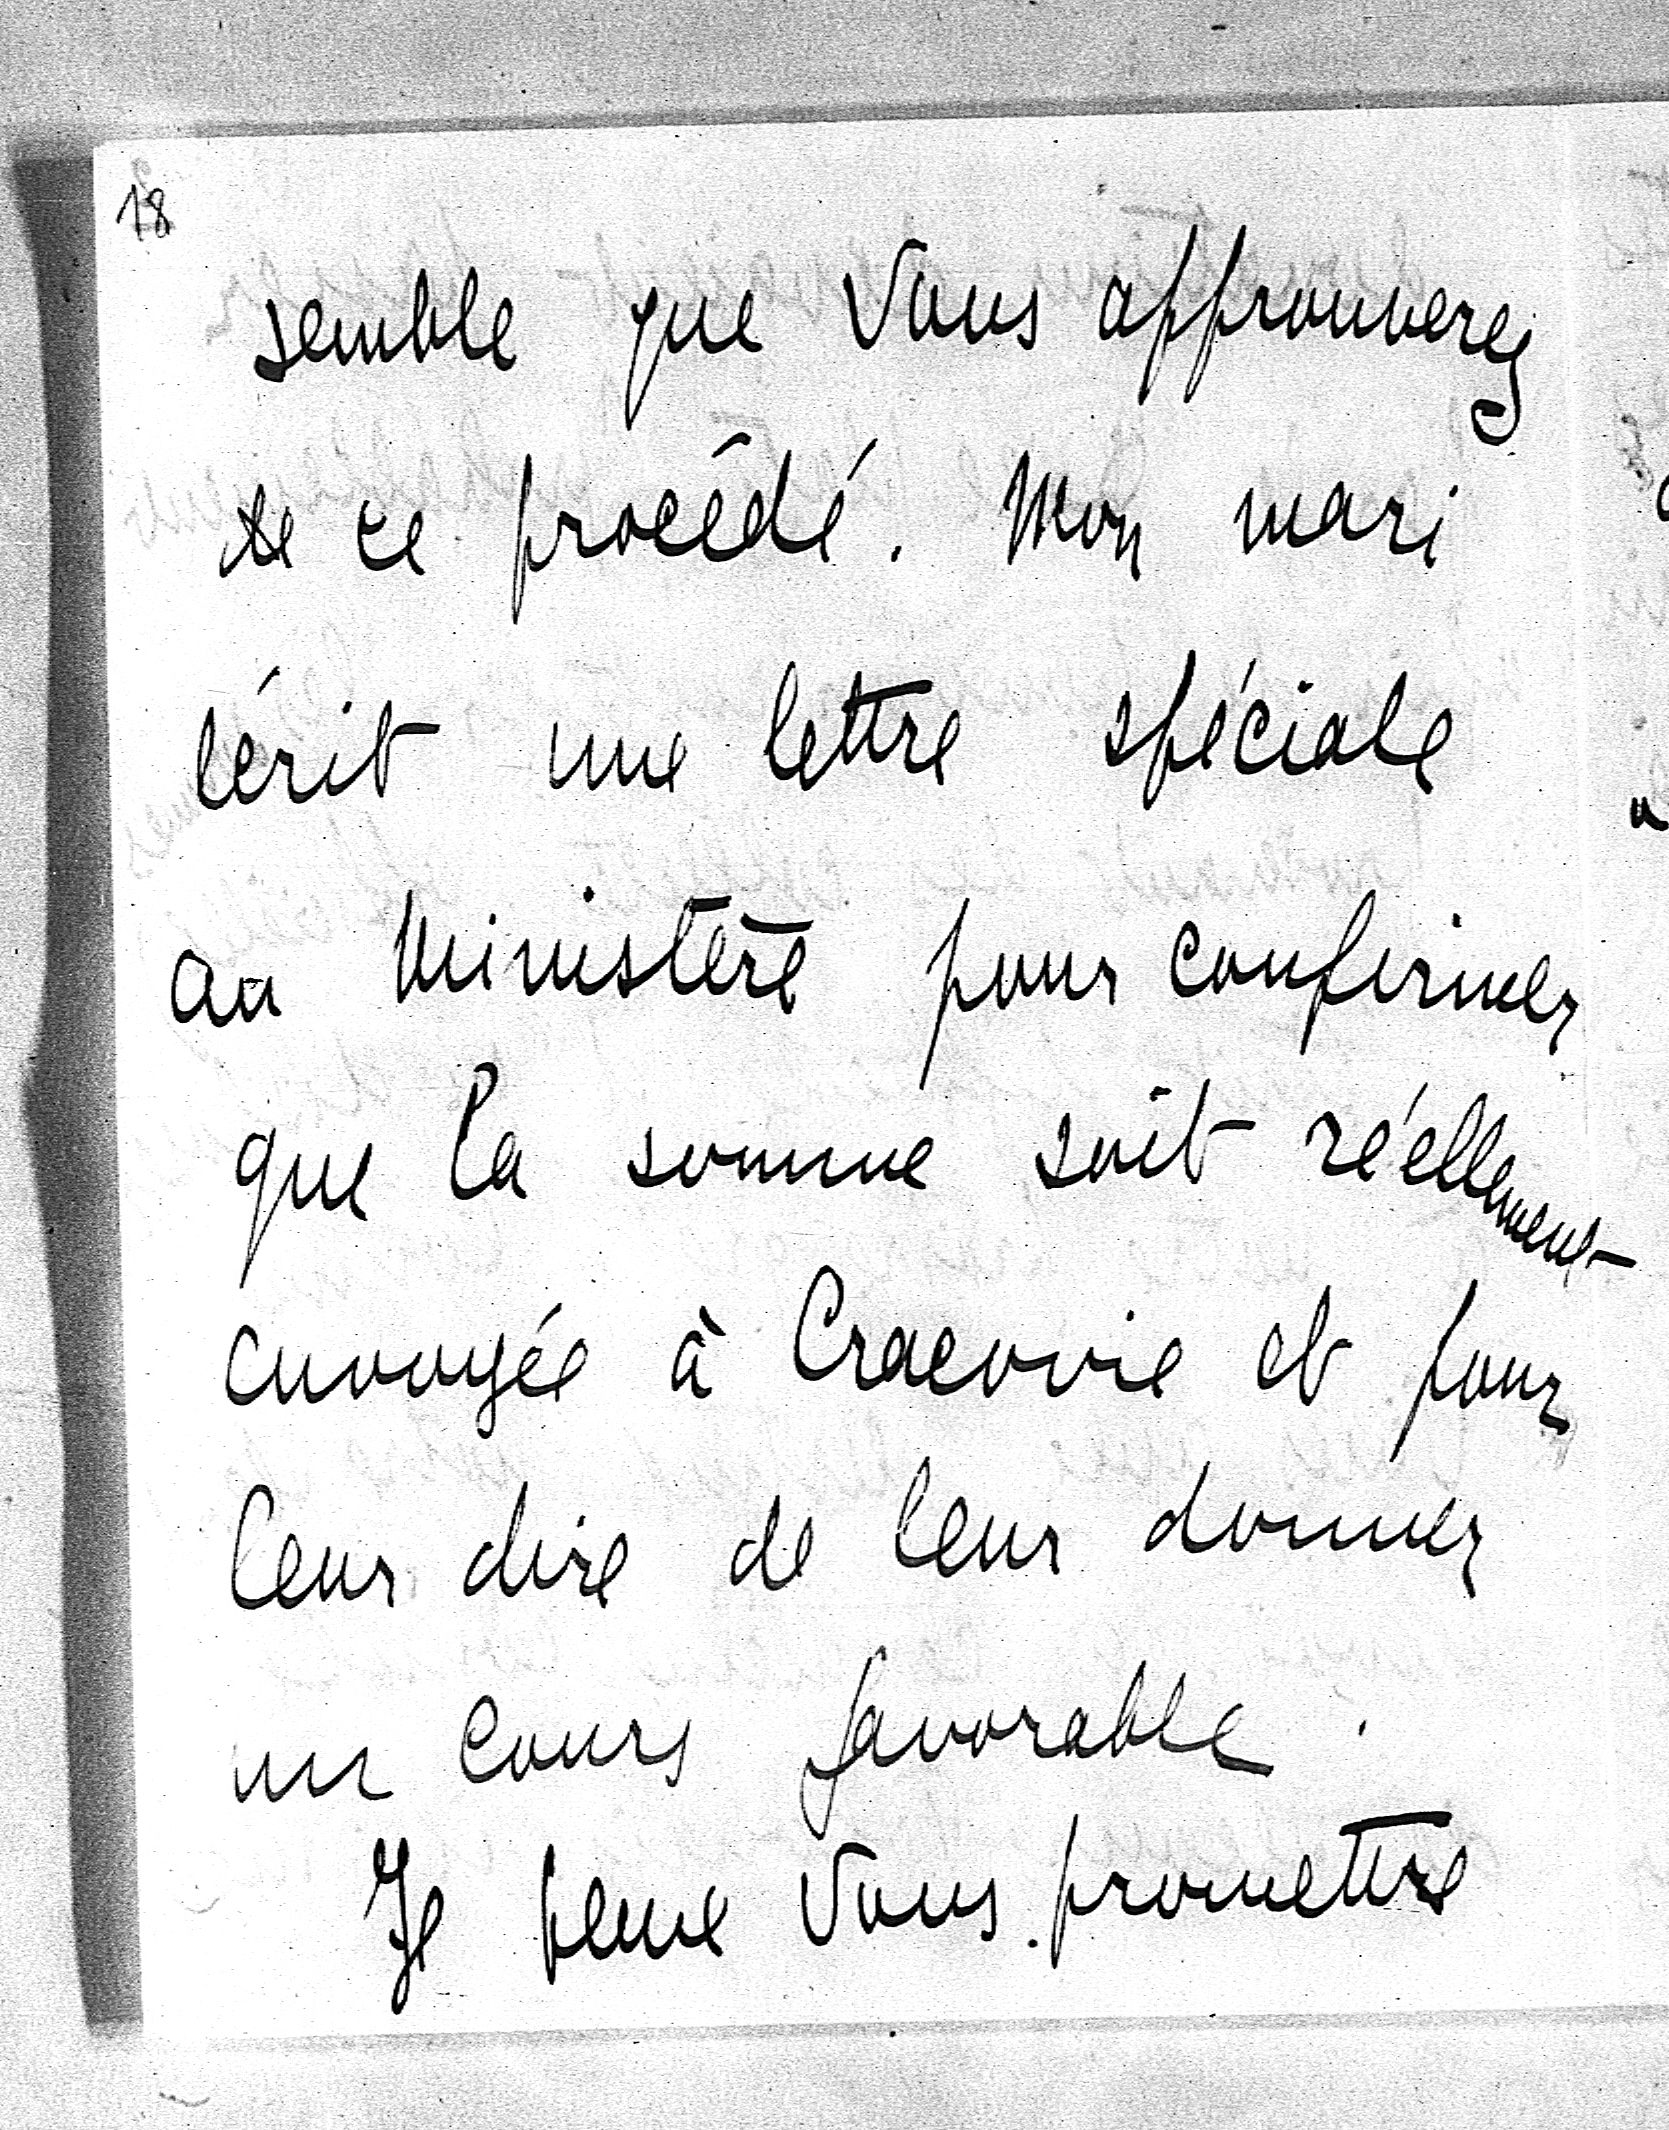 18
semble que Vous approuverez
de ce procédé. Mon mari
écrit une lettre spéciale
au Ministère pour confirmer
que la somme soit réellement
envoyée à Cracovie et pour
leur dire de leur donner
un cours favorable.
Je peux Vous promettre